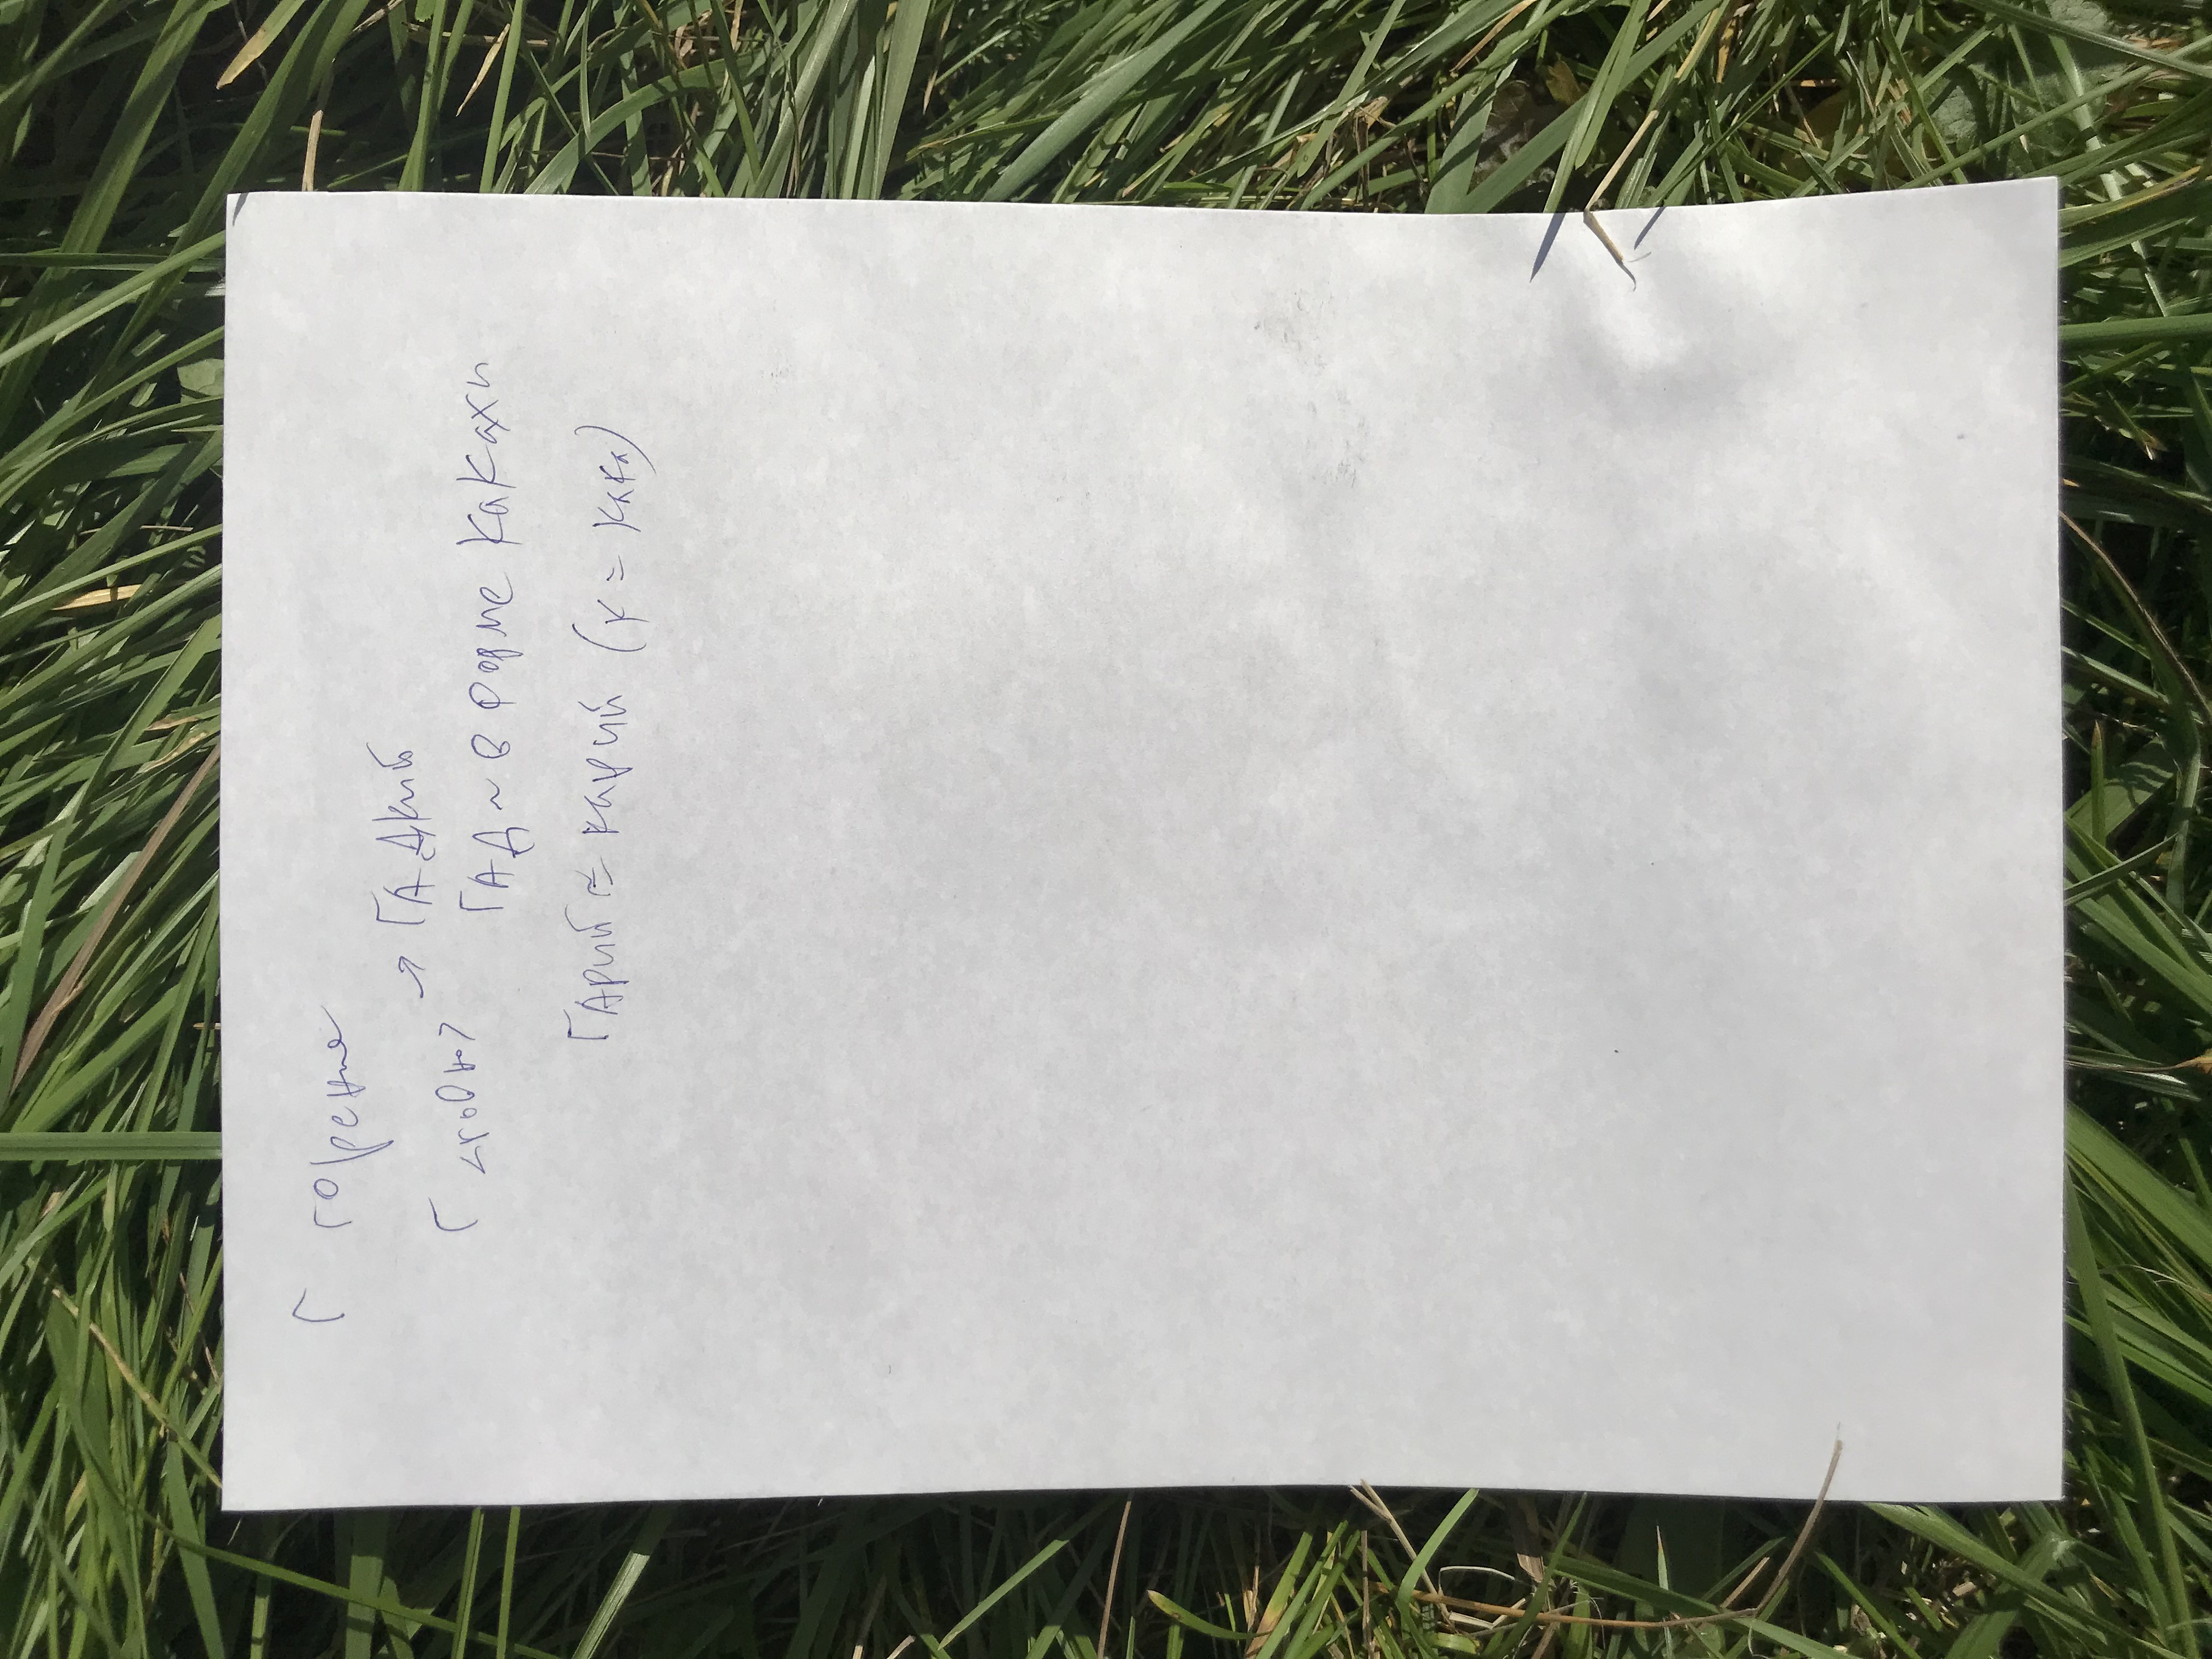 Г горение
Г <говно> → ГАДкий
ГАД ~ в форме какахи
ГАрий ≈ карий (к = кака)